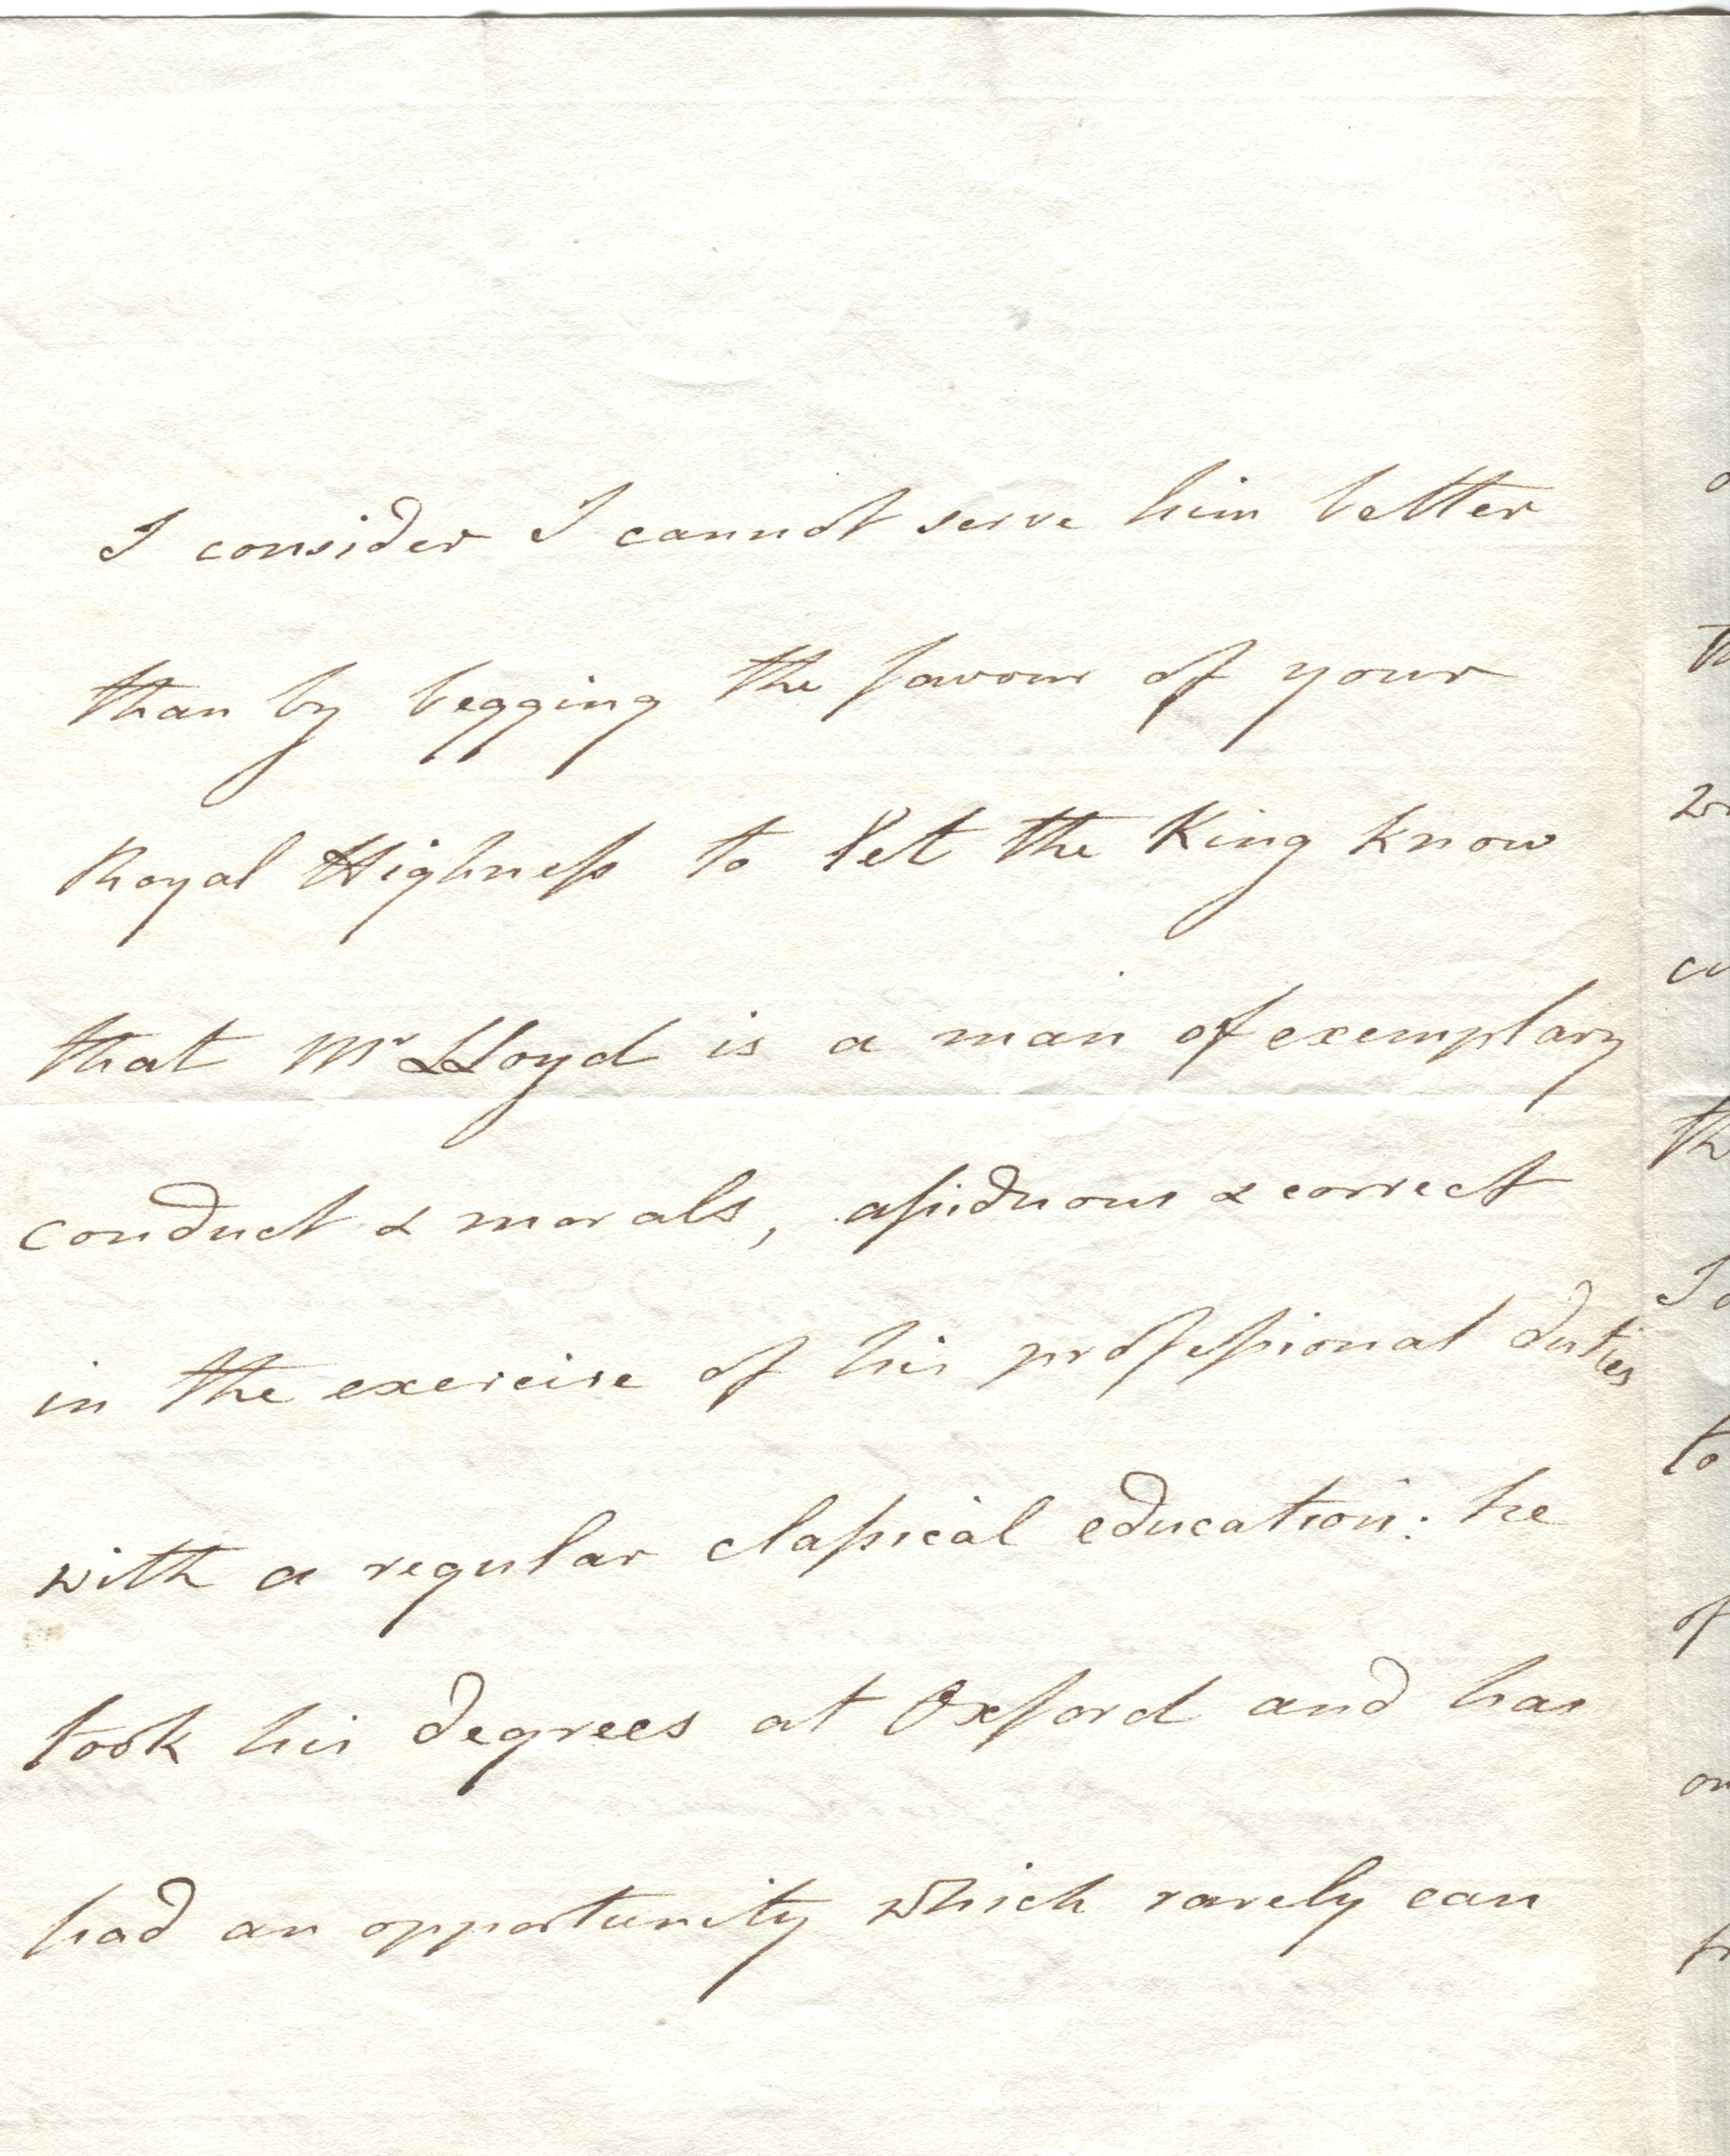 I consider I cannot serve him better
than by begging the favour of your
Royal Highneſs to let the King know
that Mr LLoyd is a man of exemplary
conduct & morals, aſsiduous & correct
in the exercise of his profeſsional duties
with a regular claſsical education: he
took his degrees at Oxford and has
had an opportunity which rarely can